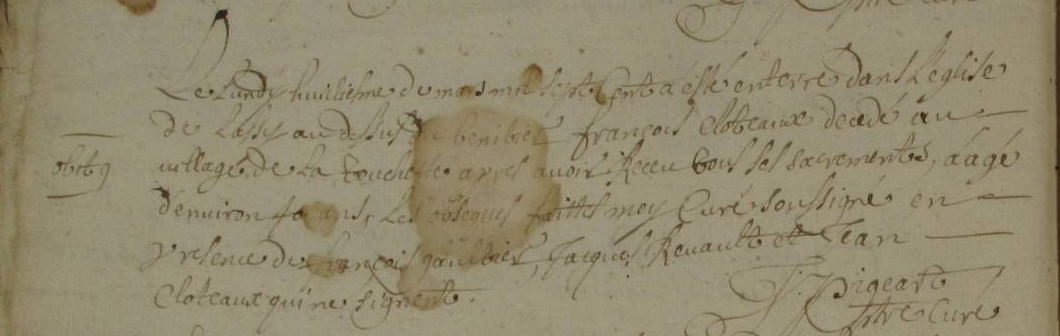 Le Lundy huitiesme de mars mil sept Cent a esté enterre dans L'eglise
de Lassy au dessus du benitier françois Cloteaux decedé au
obit 9
village de La touche apres avoir Receu tous ses sacrements, aagé
d'environ 40 ans, Les obseques faittes moy Curé soussigné en
presence de françois gaultier, Jacques Renault et Jean
Cloteaux qui ne signent.
J. Pigeart
ptre Curé